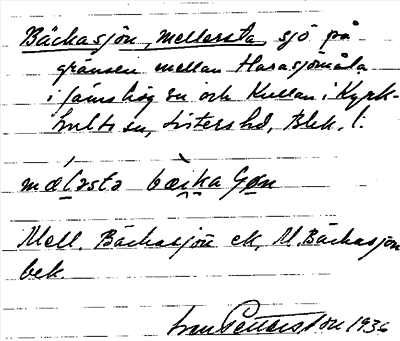 Bäckasjön, mellersta, sjö på
gränsen mellan Harasjömåla
i Jämshög sn och Kullan i Kyrk-
hults sn, Listers hd, Blek. l.
mælǝsta bæka
Mell. Bäckasjön ek, M. Bäckasjön
bek.
Pettersson 1936